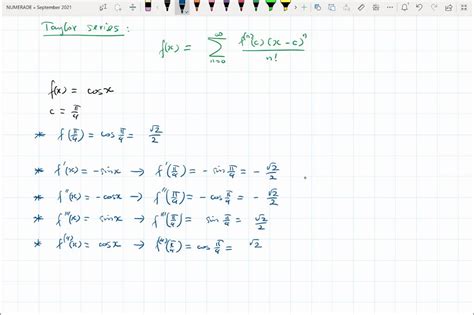 NUMERADE – September 2021
Taylor series:
f(x) = ∞ Σ n=0 f⁽ⁿ⁾(c) (x-c)ⁿ / n!
f(x) = cosx
c = π/4
* f(π/4) = cos π/4 = √2/2
* f'(x) = -sinx → f'(π/4) = - sin π/4 = - √2/2
* f''(x) = -cosx → f''(π/4) = - cos π/4 = - √2/2
* f'''(x) = sinx → f'''(π/4) = sin π/4 = √2/2
* f⁽⁴⁾(x) = cosx → f⁽⁴⁾(π/4) = cos π/4 = √2